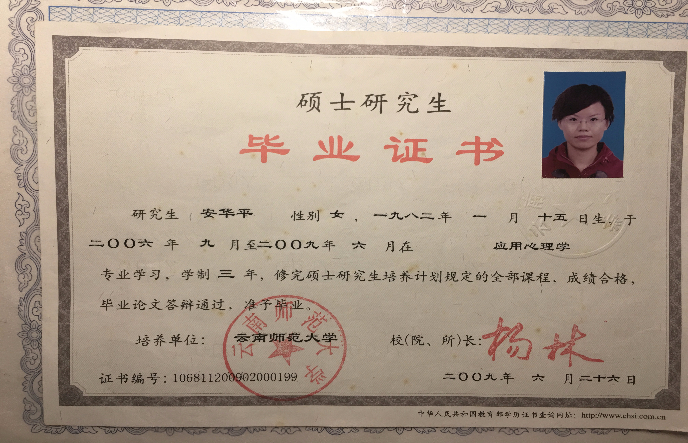 硕士研究生
毕业证书
研究生 安华平 性别 女，一九八二年 一 月 十五 日生，于
二〇〇六 年 九 月至二〇〇九 年 六 月在 应用心理学
专业学习，学制 三 年，修完硕士研究生培养计划规定的全部课程、成绩合格，
毕业论文答辩通过，准予毕业。
培养单位： 云南师范大学 校(院、所)长： 杨林
云南师范大学
证书编号：106811200902000199 二〇〇九 年 六 月 二十六 日
中华人民共和国教育部学历证书查询网址：http://www.chsi.com.cn